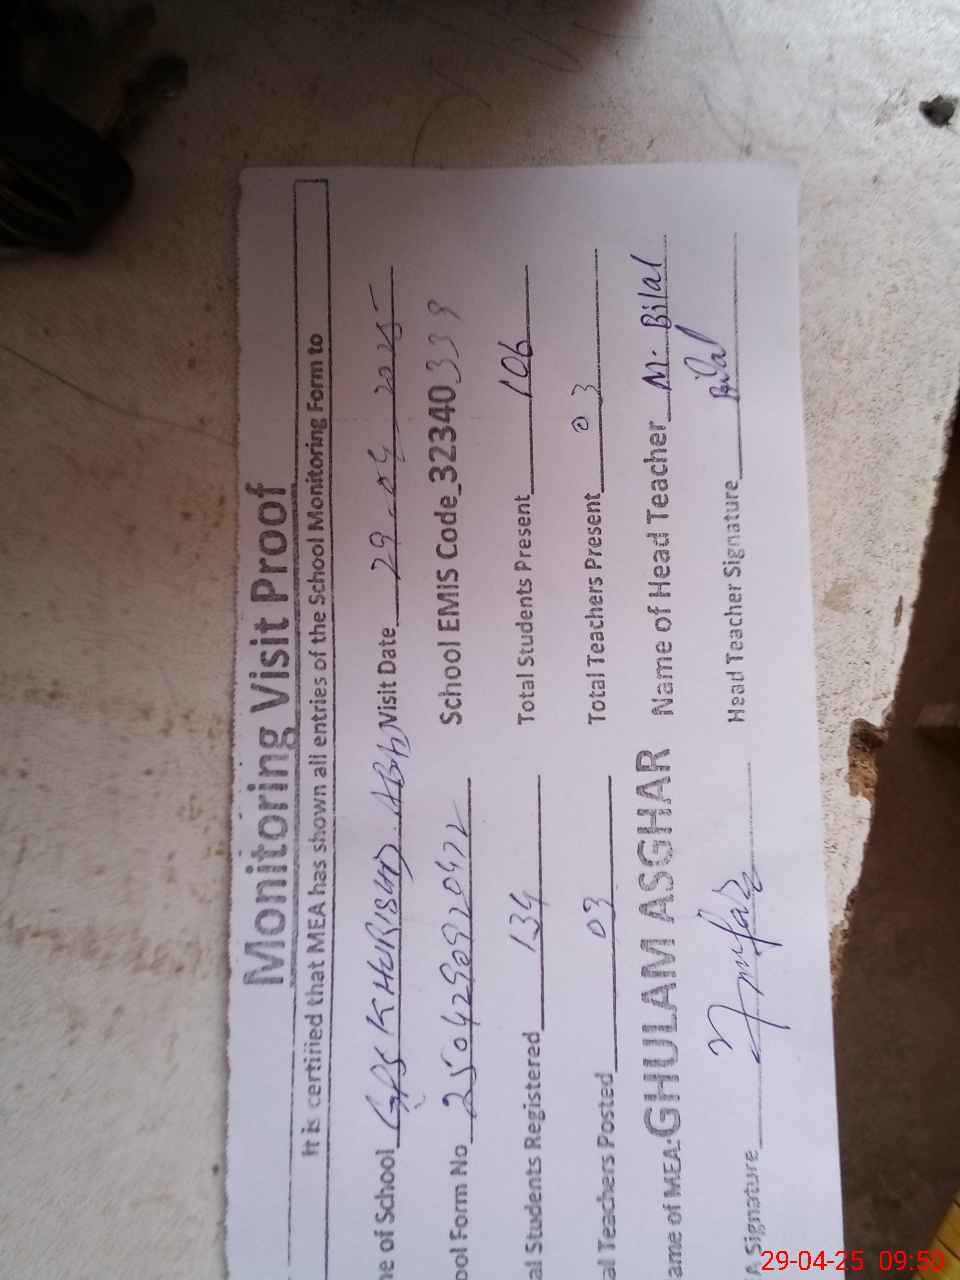 Monitoring Visit Proof
It is certified that MEA has shown all entries of the School Monitoring Form to
ne of School GPS KHURISHID ABAD Visit Date 29-04-2025
ool Form No 2504290920422 School EMIS Code_32340339
al Students Registered 134 Total Students Present 106
al Teachers Posted 03 Total Teachers Present 03
ame of MEA: GHULAM ASGHAR Name of Head Teacher M. Bilal
A Signature Head Teacher Signature Bilal
29-04-25 09:50